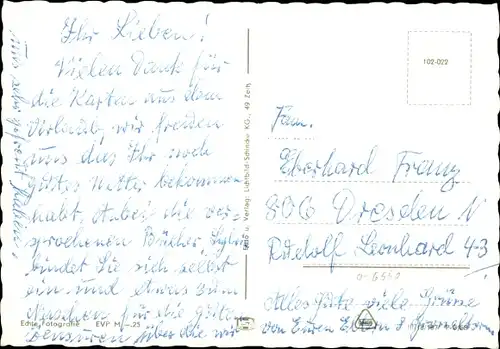 Ihr Lieben!
Vielen Dank für
die Karten aus dem
Urlaub, wir freuen
uns das Ihr noch
gutes Wetter bekommen
habt. Anbei die ver-
sprochenen Bücher,
bindet Sie sich selbst
ein und etwas zum
Naschen für die guten
Zensuren über die wir
uns sehr gefreut haben.
Echte Fotografie EVP M -.25
Bild u. Verlag: Lichtbild-Schincke KG., 49 Zeitz
102-022
Fam.
Eberhard Franz
806 Dresden N
Rudolf Leonhard 43
Alles Gute viele Grüsse
von Euren Eltern &